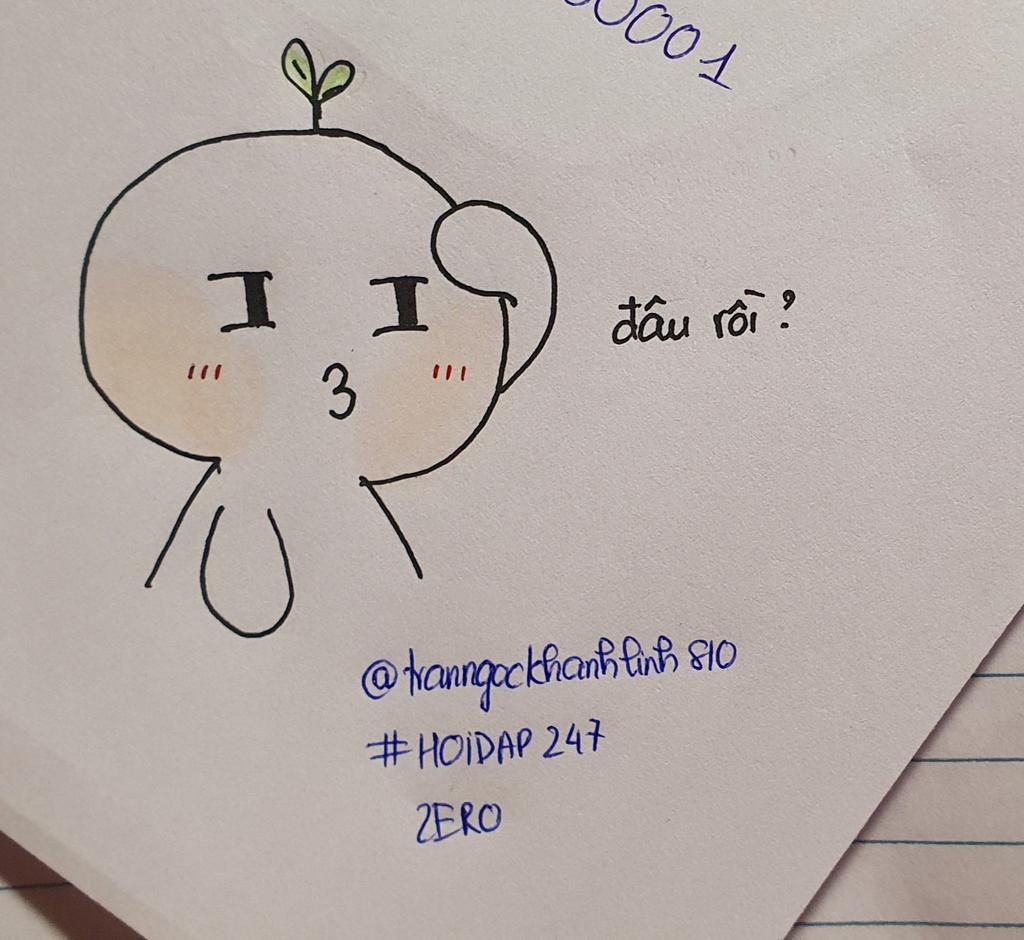 00001
đâu rồi?
@tranngockhanhlinh810
#HOiDAP247
ZERO